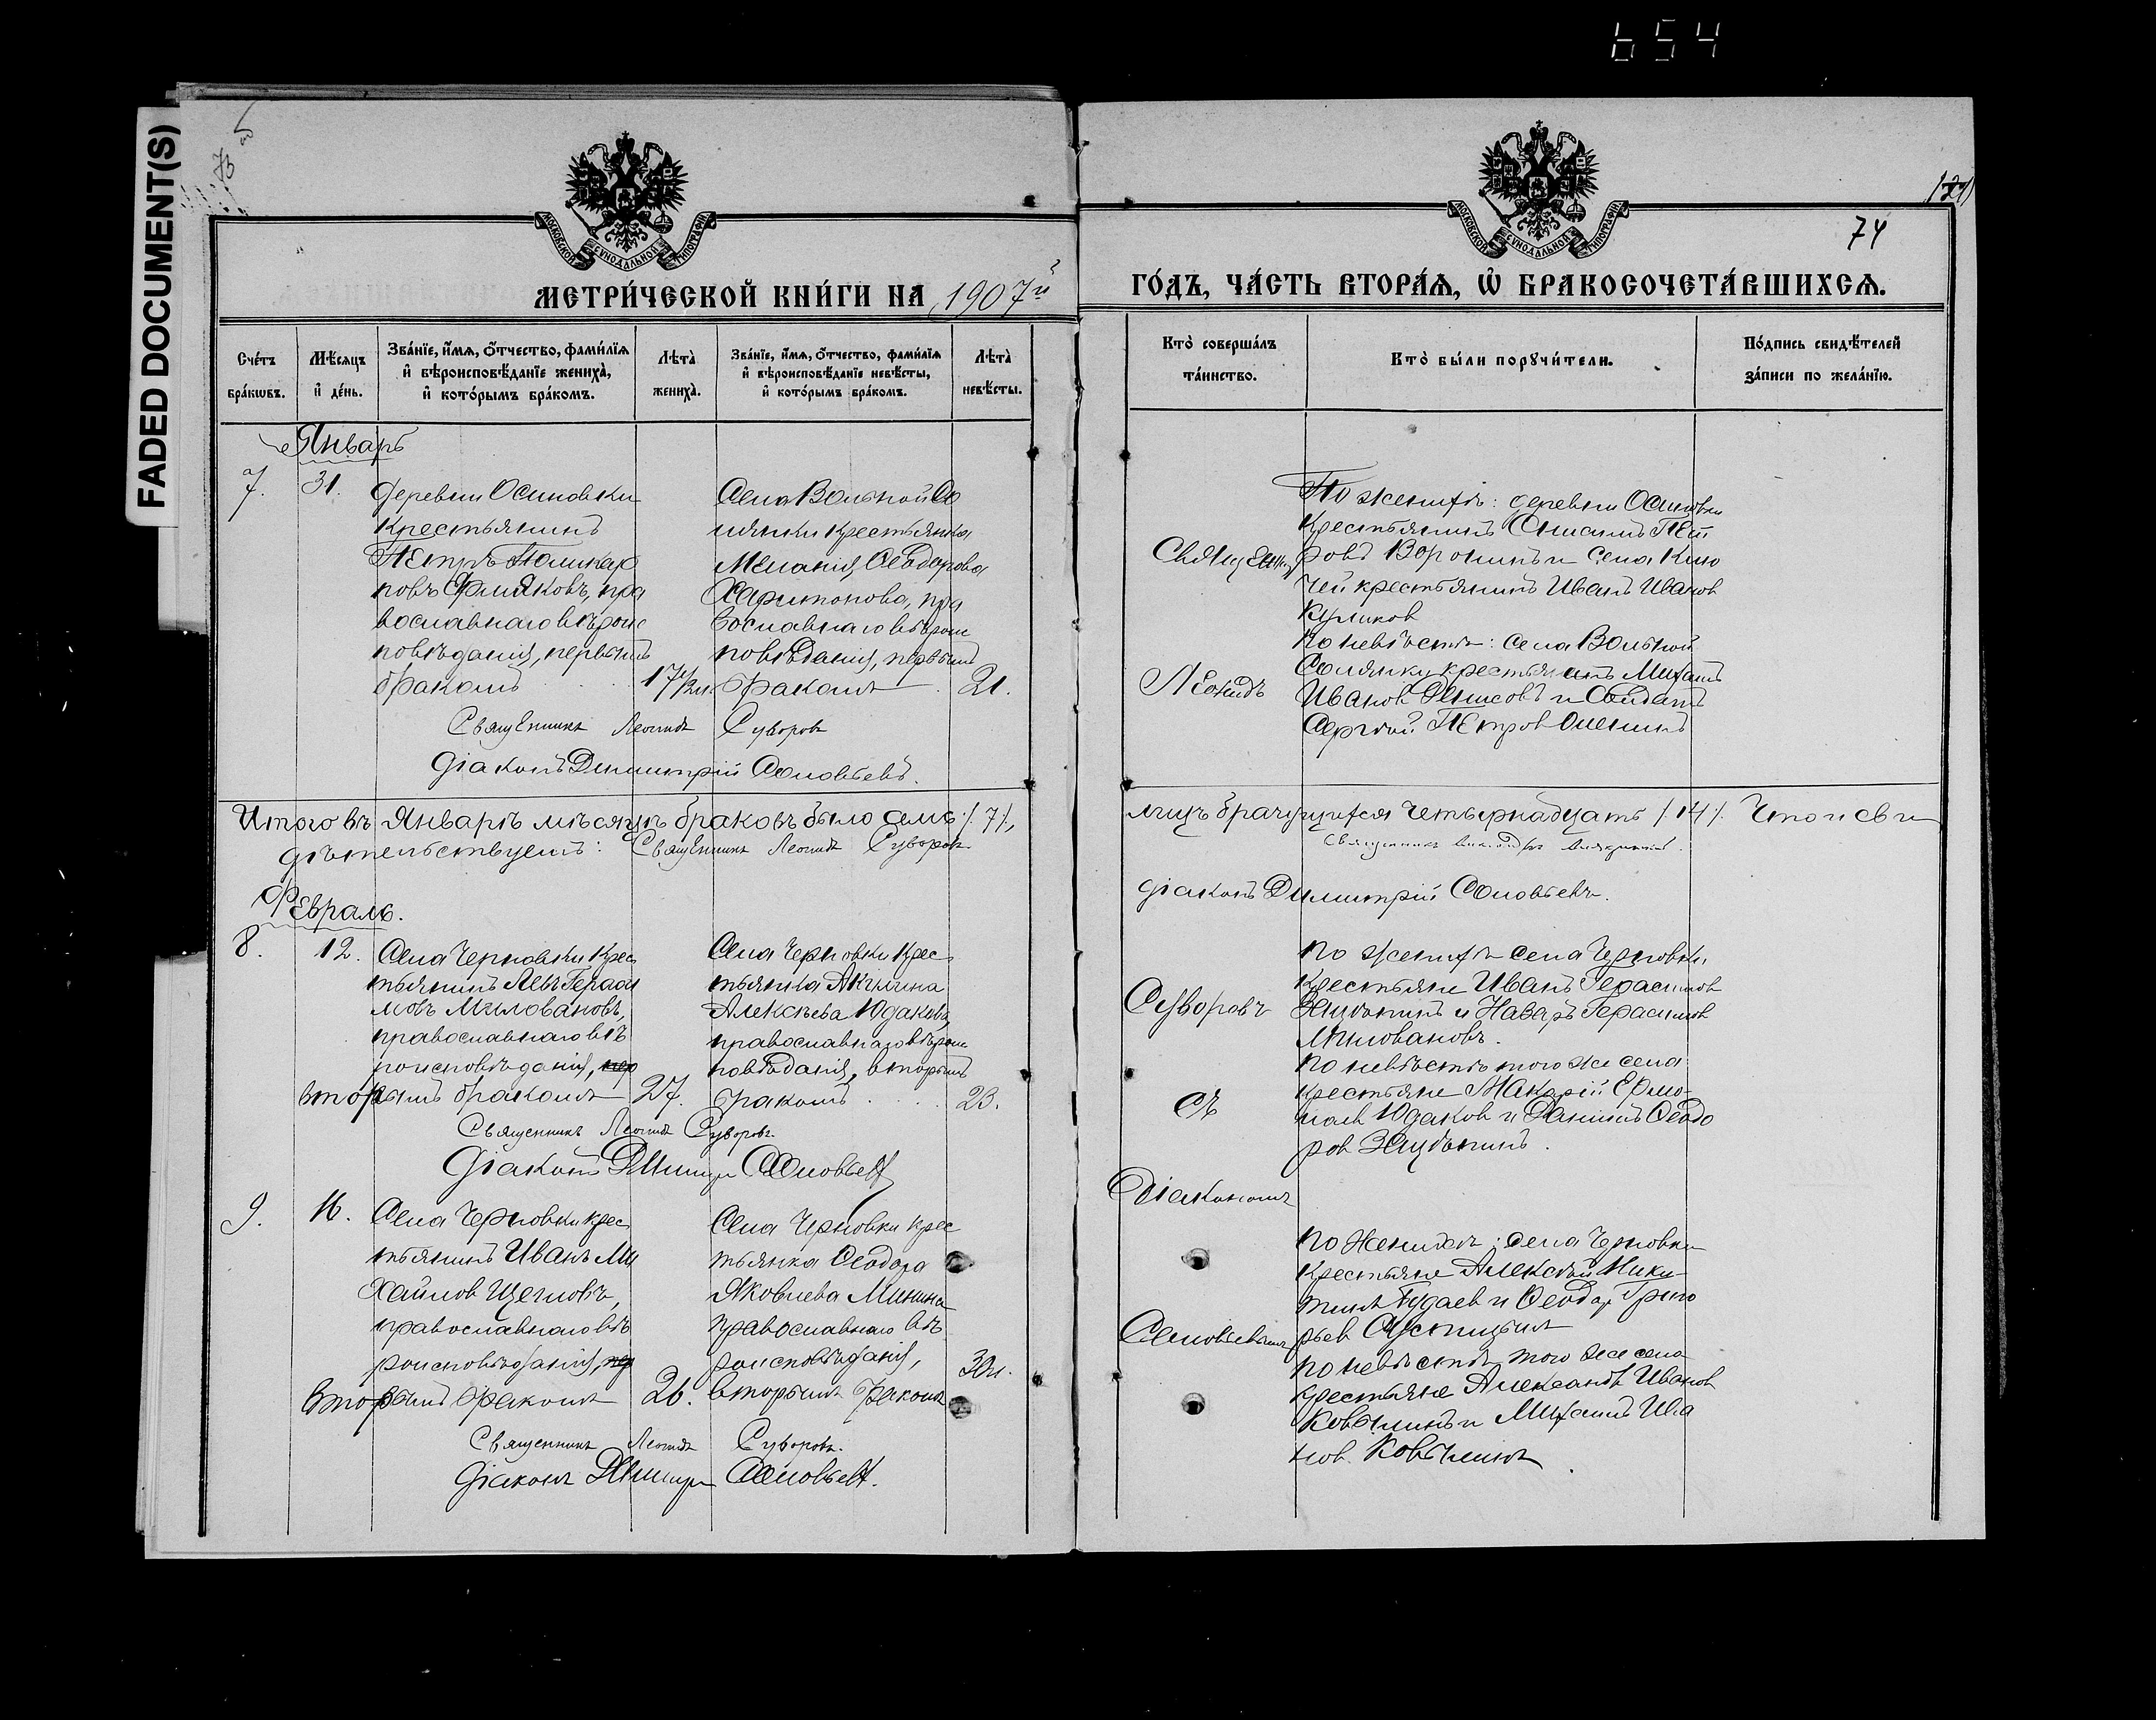 654
FADED DOCUMENT(S)
73 об
МОСКОВСКОЙ СУНОДАЛЬНОЙ ТИПОГРАФІИ
МЕТРИ́ЧЕСКОЙ КНИ́ГИ НА 1907й
Сче́тъ бра́кωвъ.
Мѣ́сяцъ и҆ де́нь.
Зва́нїе, и҆́мѧ, ѻ҆́тчество, фами́лїѧ и҆ вѣроисповѣ́данїе жениха̀, и҆ кото́рымъ бра́комъ.
Лѣта̀ жениха̀.
Зва́нїе, и҆́мѧ, ѻ҆́тчество, фами́лїѧ и҆ вѣроисповѣ́данїе невѣ́сты, и҆ кото́рымъ бра́комъ.
Лѣта̀ невѣ́сты.
Январь
7. 31.
деревни Осиновки
крестьянинъ
Петръ Поликар
повъ Фмияковъ, пра
вославнаго вѣроис
повѣданія, первымъ
бракомъ 17½ л.
Села Вольной Со
лянки крестьянка
Меланія Ѳеодорова
Харитонова, пра
вославнаго вѣроис
повѣданія, первымъ
бракомъ 21.
Священникъ Леонидъ Суворовъ
Діаконъ Димитрій Соловьевъ.
Итого въ Январѣ мѣсяцѣ браковъ было семь /7/,
дѣтельствуемъ: Священникъ Леонидъ Суворовъ
Февраль.
8. 12.
Села Черновки крес
тьянинъ Левъ Гераси
мовъ Миловановъ,
православнаго вѣ
роисповѣданія, пер
вторымъ бракомъ 27.
Села Черновки крес
тьянка Акилина
Алексѣева Юдакова,
православнаго вѣроис
повѣданія, вторымъ
бракомъ 23.
Священникъ Леонидъ Суворовъ.
Діаконъ Димитрій Соловьевъ
9. 16.
Села Черновки крес
тьянинъ Иванъ Ми
хайлов Щегловъ,
православнаго вѣ
роисповѣданія, пер
вторымъ бракомъ 26.
Села Черновки крес
тьянка Ѳеодора
Яковлева Минина
православнаго вѣ
роисповѣданія,
вторымъ бракомъ 30 л.
Священникъ Леонидъ Суворовъ.
Діаконъ Димитрій Соловьевъ.
МОСКОВСКОЙ СУНОДАЛЬНОЙ ТИПОГРАФІИ
74
ГО́ДЪ, ЧА́СТЬ ВТОРА́Ѧ, Ѽ БРАКОСОЧЕТА́ВШИХСѦ.
Кто̀ соверша́лъ та́инство.
Кто̀ бы́ли порꙋчи́тели.
По́дпись свидѣ́телей за́писи по жела́нїю.
Священникъ
Леонидъ
По женихѣ: деревни Осиновки
крестьянинъ Пет
ровъ Воронинъ и села Клю
чей крестьянинъ Иванъ Иванов
Куликов
по невѣстѣ: села Вольной
Солянки крестьянинъ Михаилъ
Иванов Денисовъ и Солдатъ
Сергѣй Петров Оленинъ
лицъ брачущихся четырнадцать /14/. Что и сви
Священникъ
діаконъ Димитрій Соловьевъ.
Суворовъ
съ
по женихѣ села Черновки,
крестьяне Иванъ Герасимов
Зацѣпинъ и Назаръ Герасимов
Миловановъ.
по невѣстѣ того же села
крестьяне Макарій Ермо-
лаев Юдаков и Даніилъ Ѳеодо
ров Зацѣпинъ.
Діакономъ
Соловьевымъ
по женихѣ: села Черновки
крестьяне Алексѣй Ники
тинъ Будаев и Ѳеодор Григо
рьев
по невѣстѣ того же села
крестьяне Александр Иванов
Ковылинъ и Михаилъ Ива
нов Ковылинъ